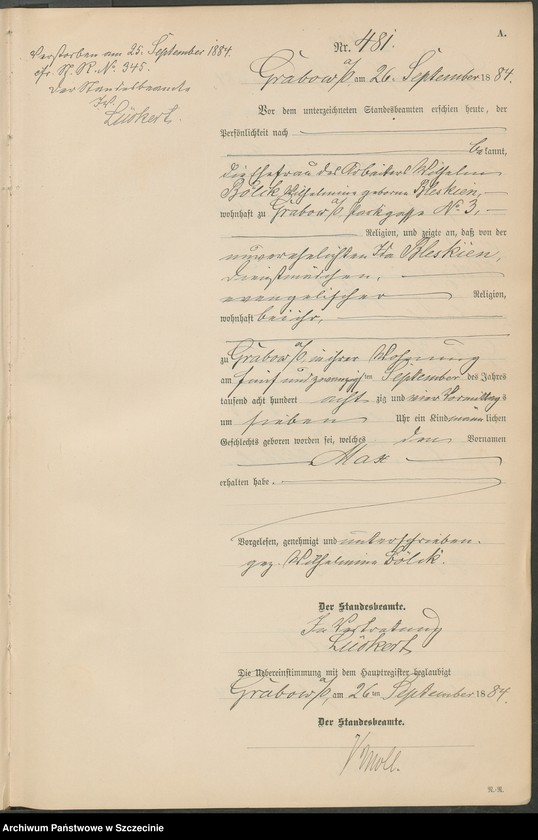 A.
Verstorben am 25. September 1884.
cfr. St. R. No. 345.
Der Standesbeamte
I.V.
Lüskert.
Nr. 481.
Grabow a/O, am 26. September 1884.
Vor dem unterzeichneten Standesbeamten erschien heute, der
Persönlichkeit nach
bekannt,
die Ehefrau des Arbeiters Wilhelm
Bölck, Wilhelmine geborene Bleskien,
wohnhaft zu Grabow a/O, Parkgasse No. 3,
Religion, und zeigte an, daß von der
unverehelichten Ida Bleskien,
Dienstmädchen,
evangelischer Religion,
wohnhaft bei ihr,
zu Grabow a/O, in ihrer Wohnung
am fünf und zwanzigsten September des Jahres
tausend acht hundert achtzig und vier Vormittags
um sieben Uhr ein Kind männlichen
Geschlechts geboren worden sei, welches den Vornamen
Max
erhalten habe.
Vorgelesen, genehmigt und unterschrieben.
gez. Wilhelmine Bölck.
Der Standesbeamte.
In Vertretung
Lüskert
Die Uebereinstimmung mit dem Hauptregister beglaubigt
Grabow a/O, am 26ten September 1884.
Der Standesbeamte.
N.-R.
Archiwum Państwowe w Szczecinie